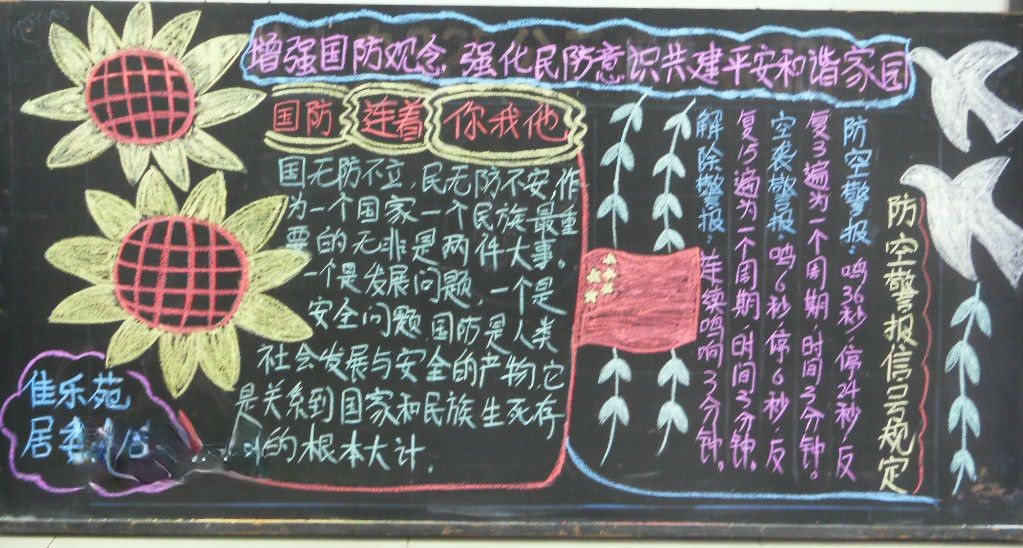 增强国防观念 强化民防意识共建平安和谐家园
国防 连着 你我他
国无防不立,民无防不安,作
为一个国家一个民族最重
要的无非是两件大事,
一个是发展问题,一个是
安全问题,国防是人类
社会发展与安全的产物,它
是关系到国家和民族生死存
的根本大计.
防空警报信号规定
防空警报:鸣36秒,停24秒,反
复3遍为一个周期,时间3分钟。
空袭警报:鸣6秒,停6秒,反
复15遍为一个周期,时间3分钟。
解除警报:连续鸣响3分钟。
佳乐苑
居委